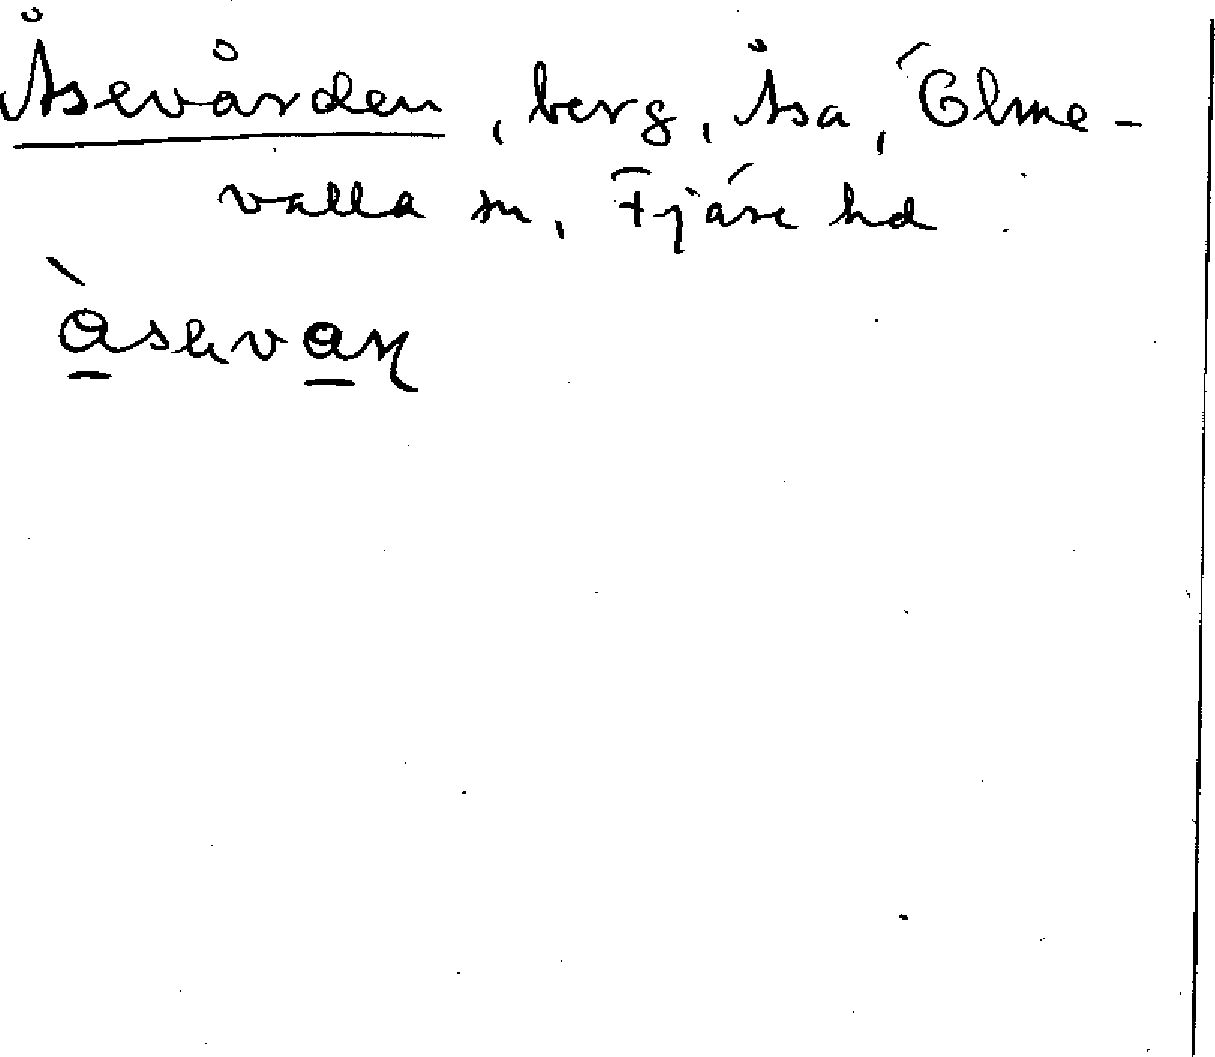 Åsevården, berg, Åsa, Ölme-
valla sn, Fjäre hd